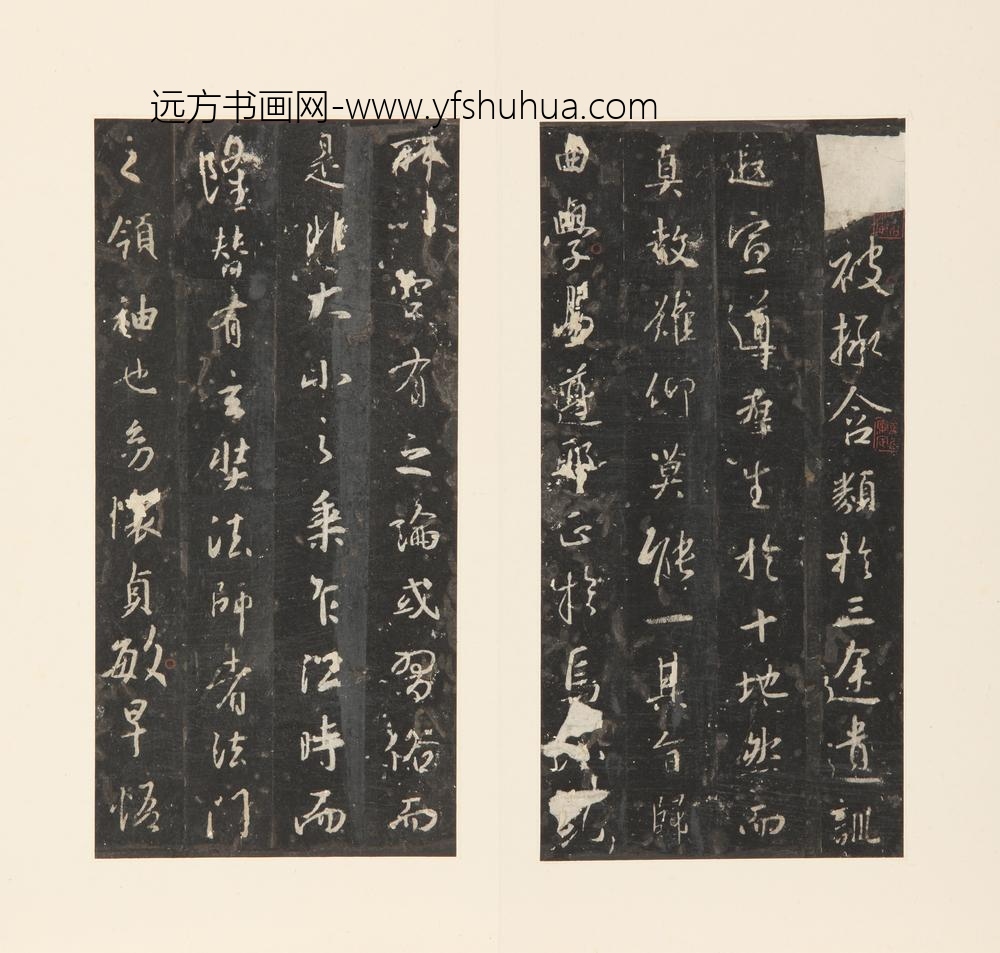 远方书画网-www.yfshuhua.com
被拯含類於三途遺訓
遐宣導群生於十地然而
真教難仰莫能一其旨歸
曲學易遵耶正於焉紛糺
所以空有之論或習俗而
是非大小之乘乍沿時而
隆替有玄奘法師者法門
之領袖也幼懷貞敏早悟